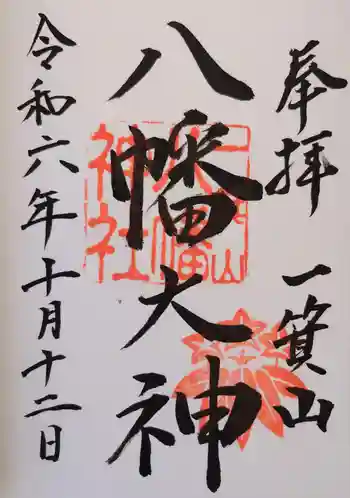 奉拝 一箕山
八幡大神
令和六年十月十二日
一箕山
八幡
神社